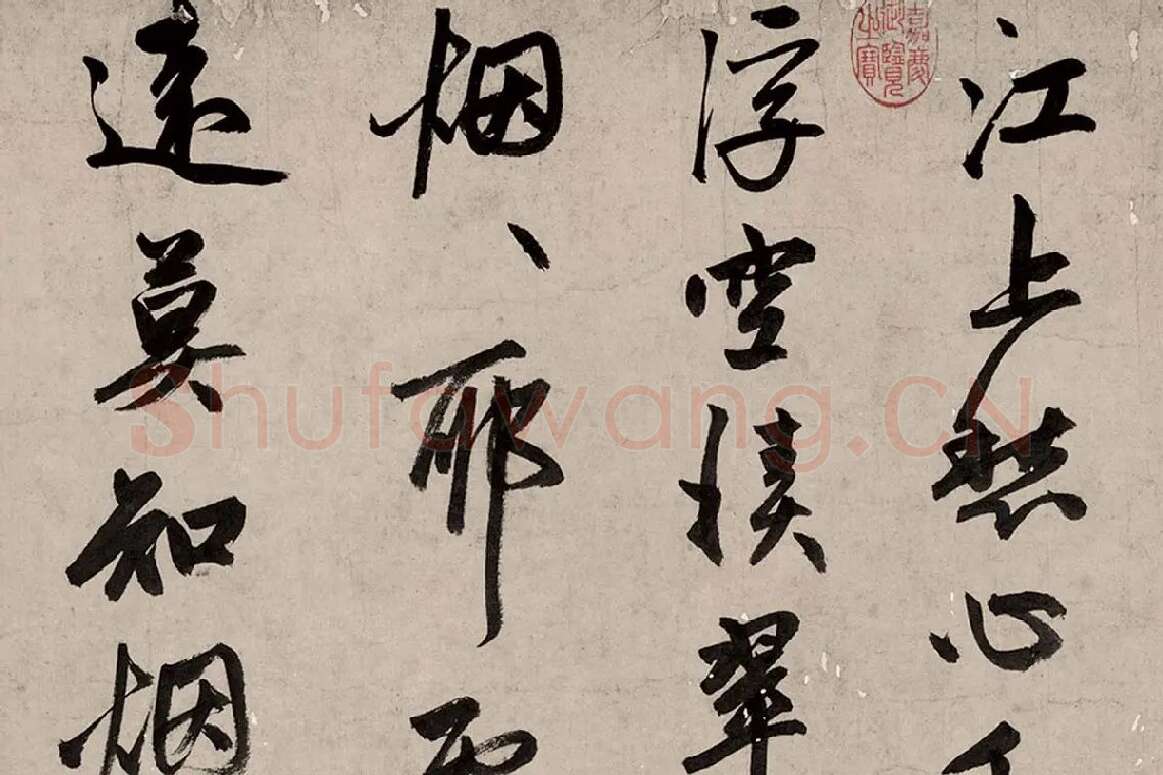 江上愁心千
浮空積翠
烟、耶雲
遠莫知烟
嘉慶御覽之寶
Shufawang.CN